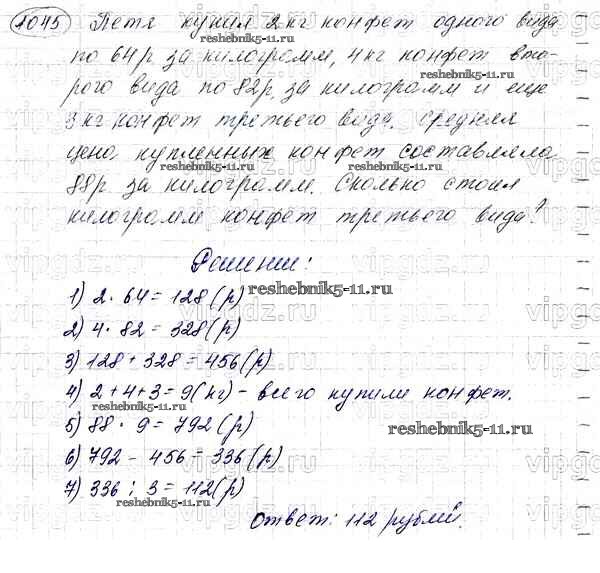 1045 Петя купил 2 кг конфет одного вида
reshebnik5-11.ru
по 64 р за килограмм, 4 кг конфет вто-
reshebnik5-11.ru
рого вида по 82 р, за килограмм и еще
3 кг конфет третьего вида. Средняя
цена купленных конфет составляла
reshebnik5-11.ru
88 р за килограмм. Сколько стоил
килограмм конфет третьего вида?
Решение:
reshebnik5-11.ru
1) 2 · 64 = 128 (р)
2) 4 · 82 = 328 (р)
3) 128 + 328 = 456 (р)
4) 2 + 4 + 3 = 9 (кг) - всего купили конфет.
reshebnik5-11.ru
5) 88 · 9 = 792 (р)
reshebnik5-11.ru
6) 792 - 456 = 336 (р)
7) 336 : 3 = 112 (р)
reshebnik5-11.ru
Ответ: 112 рублей.